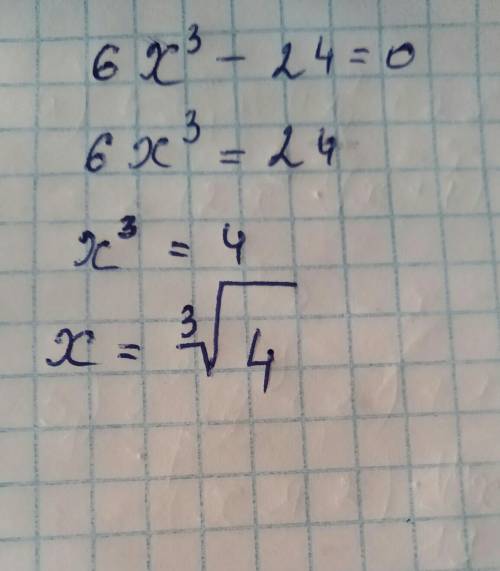 6x³ - 24 = 0
6x³ = 24
x³ = 4
x = ³√4